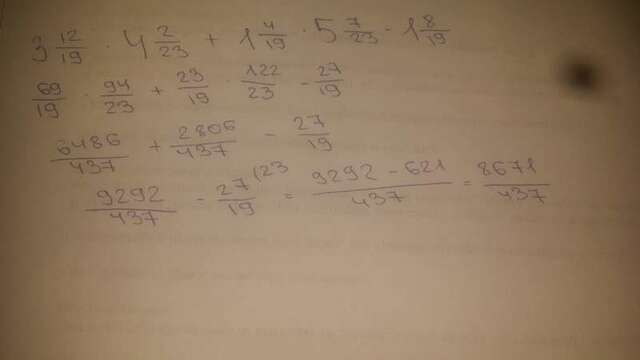 3 12/19 · 4 2/23 + 1 4/19 · 5 7/23 - 1 8/19
69/19 · 94/23 + 23/19 · 122/23 - 27/19
6486/437 + 2806/437 - 27/19
9292/437 - 27/19 (23 = 9292 - 621/437 = 8671/437